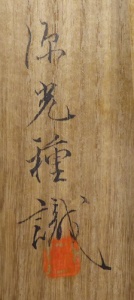 源光種識